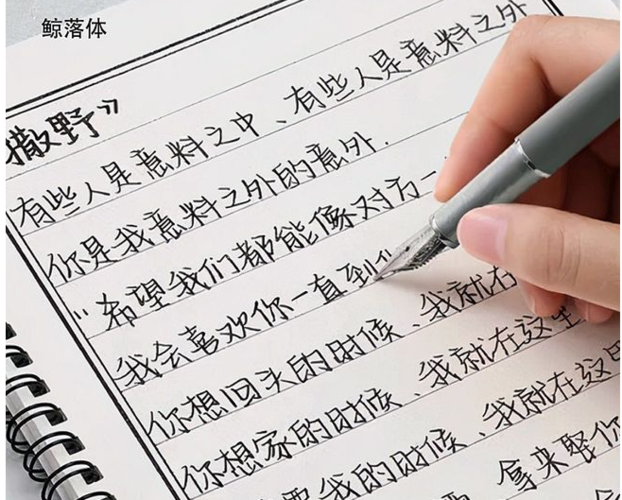 鲸落体
撒野》
有些人是意料之中、有些人是意料之外
你是我意料之外的意外.
"希望我们都能像对方一
我会喜欢你一直到"
你想回头的时候、我就在
你想家的时候、我就在这里
我的时候、我就在这里
拿来娶你